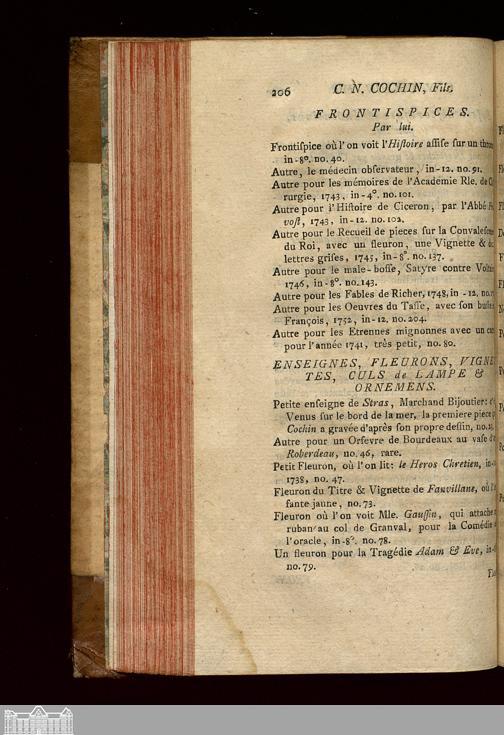 206 C. N. COCHIN, Fils.
FRONTISPICES.
Par lui.
Frontiſpice où l'on voit l'Hiſtoire aſſiſe ſur un
in-8º. no. 40.
Autre, le médecin obſervateur, in-12. no. 91.
Autre pour les mémoires de l'Academie Rle. de
rurgie, 1743, in-4º. no. 101.
Autre pour l'Hiſtoire de Ciceron, par l'Abbé
voſt, 1743, in-12. no. 102.
Autre pour le Recueil de pieces ſur la
du Roi, avec un fleuron, une Vignette &
lettres griſes, 1745, in-8º. no. 137.
Autre pour le male-boſſe, Satyre contre
1746, in-8º. no. 143.
Autre pour les Fables de Richer, 1748, in-12.
Autre pour les Oeuvres du Taſſe, avec ſon
François, 1752, in-12. no. 204.
Autre pour les Etrennes mignonnes avec un
pour l'année 1741, très petit, no. 80.
ENSEIGNES, FLEURONS,
TES, CULS de LAMPE &
ORNEMENS.
Petite enſeigne de Stras, Marchand Bijoutier:
Venus ſur le bord de la mer, la premiere
Cochin a gravée d'après ſon propre deſſin,
Autre pour un Orfevre de Bourdeaux au vaſe
Roberdeau, no. 46, rare.
Petit Fleuron, où l'on lit: le Heros Chretien,
1738, no. 47.
Fleuron du Titre & Vignette de Fanvillane, où
fante jaune, no. 73.
Fleuron où l'on voit Mle. Gauſſin, qui attache
ruban au col de Granval, pour la Comédie
l'oracle, in-8º. no. 78.
Un fleuron pour la Tragédie Adam & Eve,
no. 79.